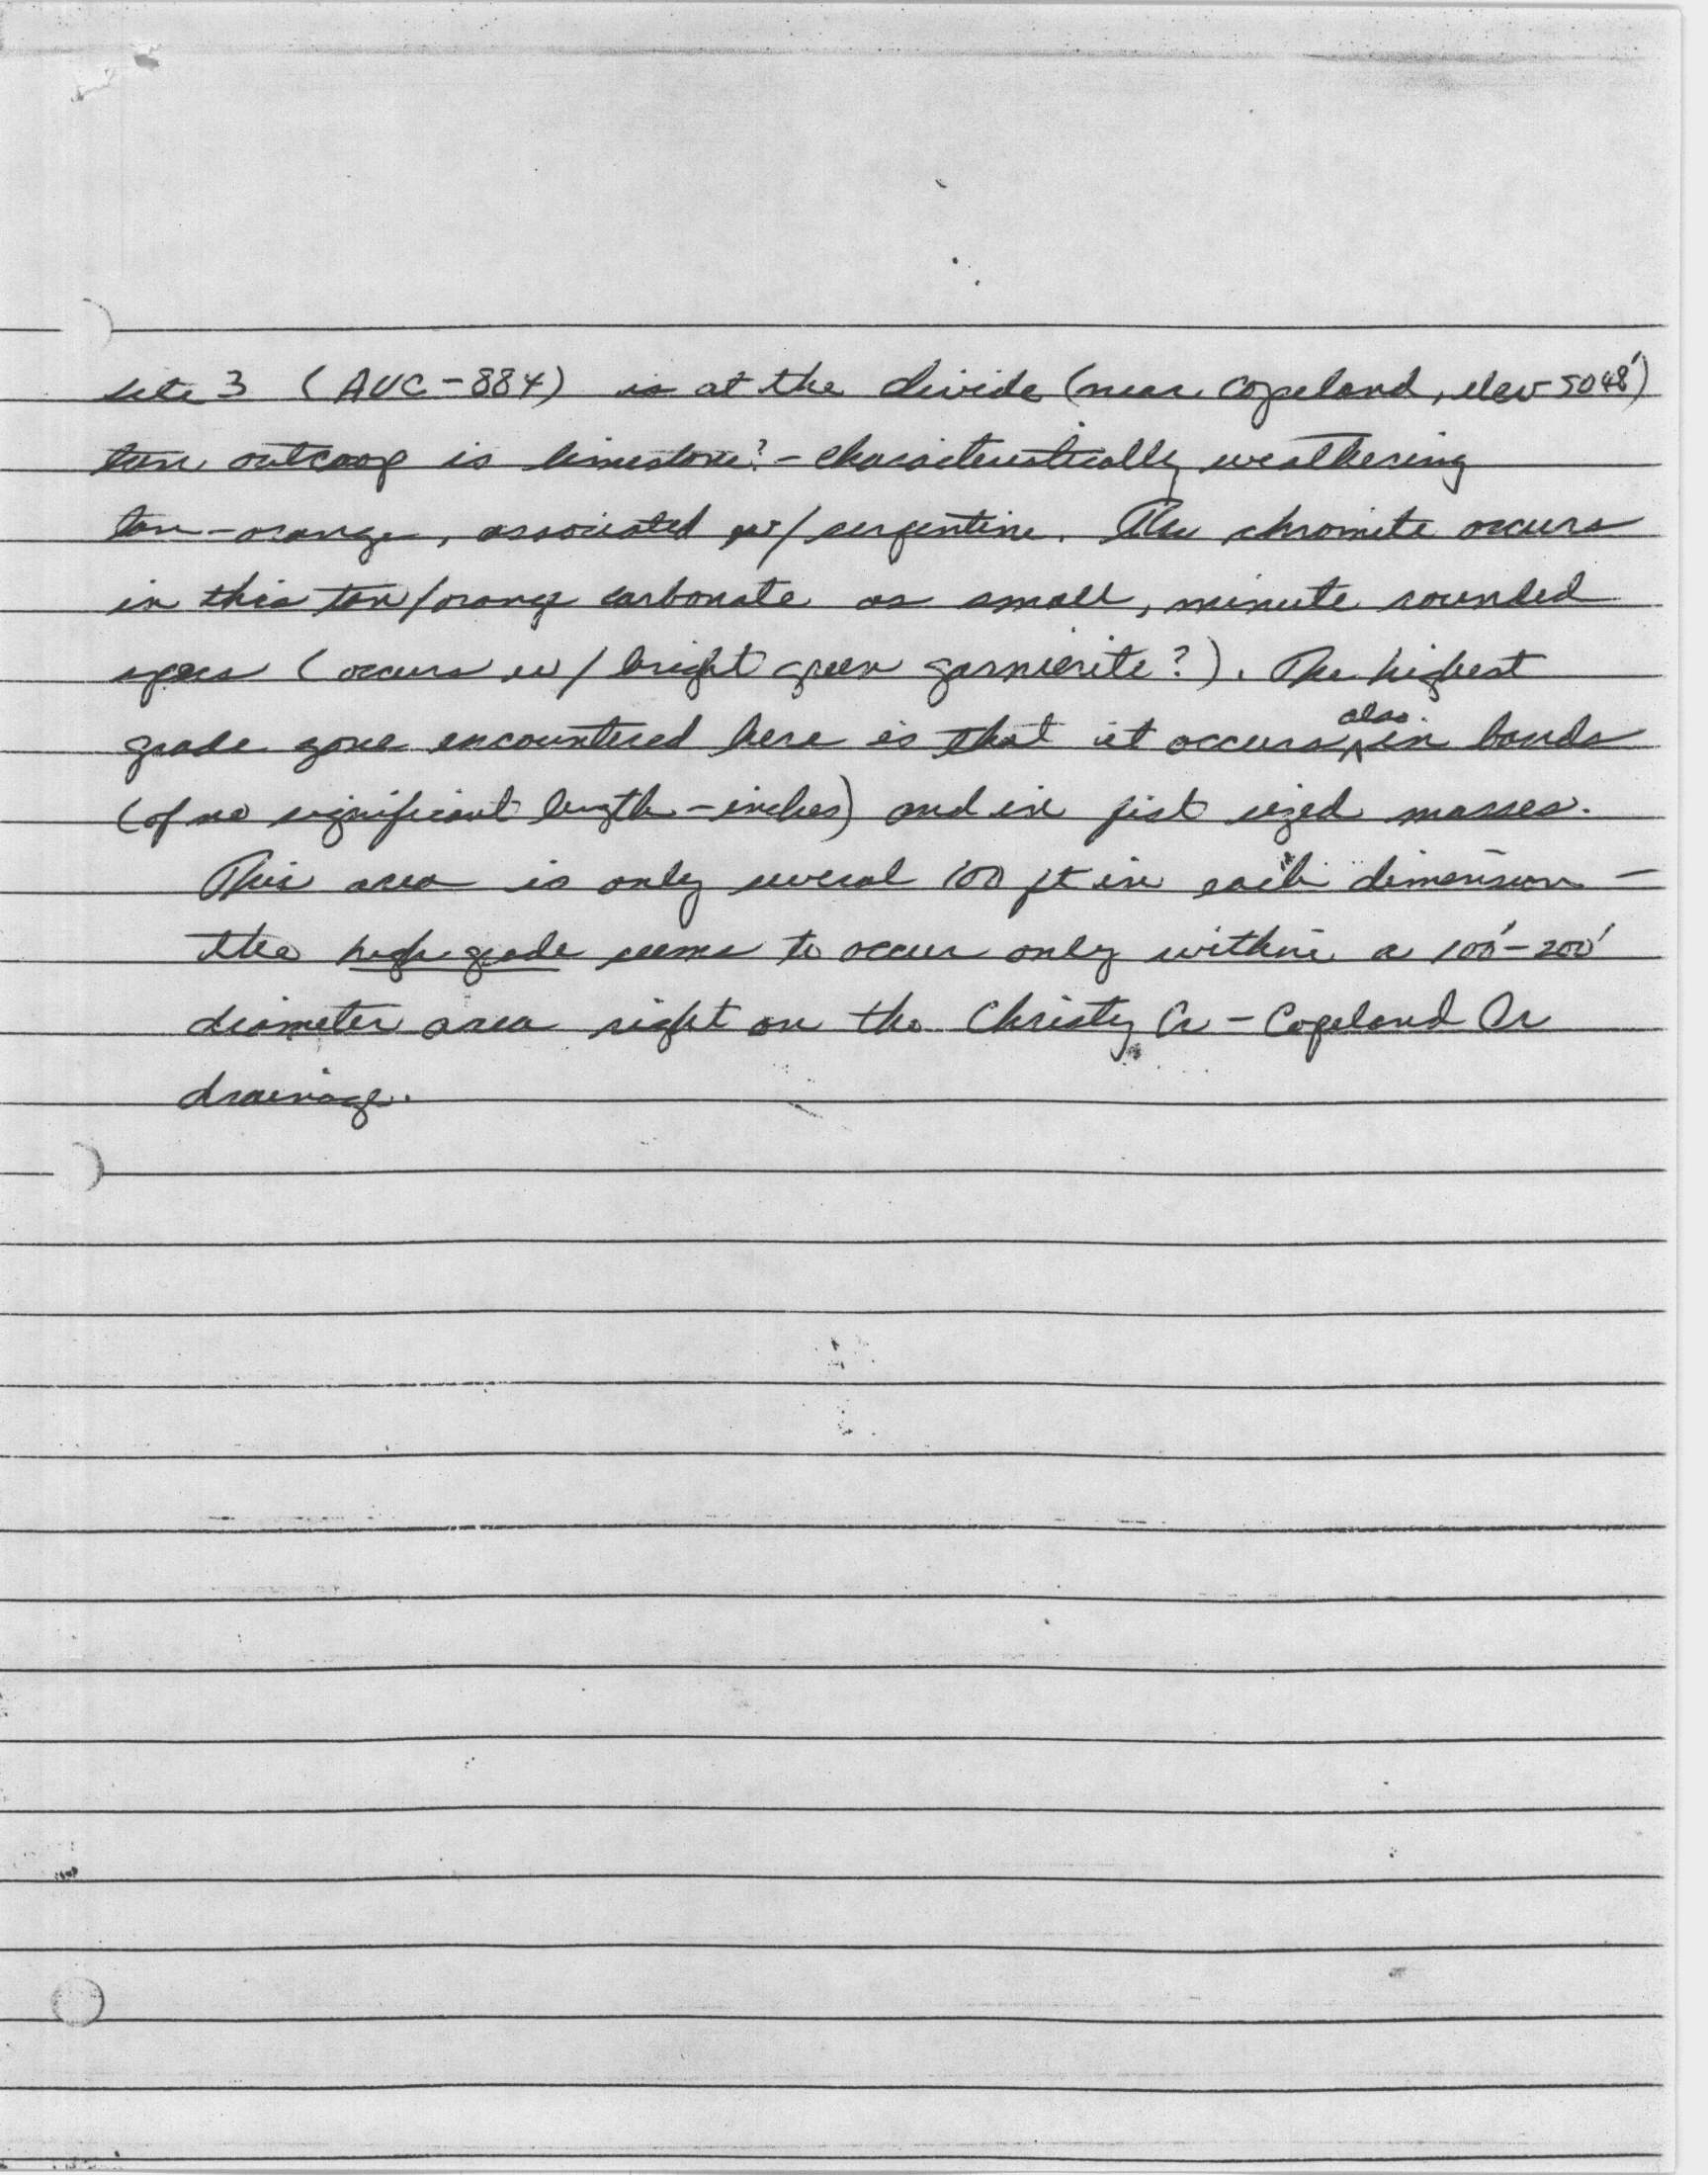 site 3 (AUC-884) is at the divide (near Copeland, elev 5048')
outcrop is limestone? - characteristically weathering
tan-orange, associated w/ serpentine. The chromite occurs
in this tan/orange carbonate as small, minute rounded
specs (occurs w/ bright green garnierite?). The highest
grade zone encountered here is that it occurs also in bands
(of no significant length - inches) and in fist sized masses.
This area is only several 100 ft in each dimension -
the high grade seems to occur only within a 100'-200'
diameter area right on the Christy Cr - Copeland Cr
drainage.